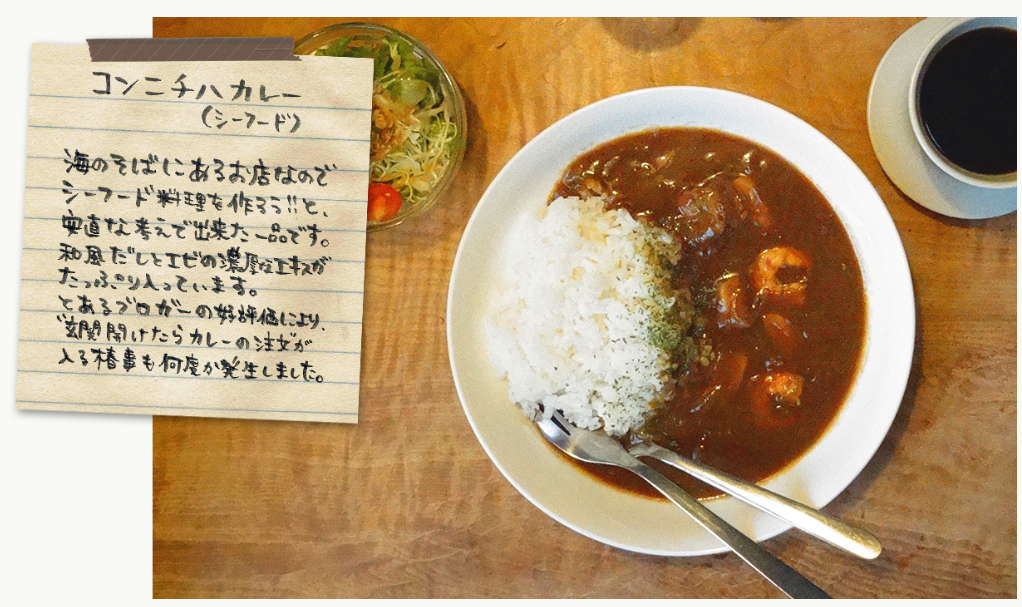 コンニチハカレー
(シーフード)
海のそばにあるお店なので
シーフード料理を作ろう!!と、
安直な考えで出来た一品です。
和風だしとエビの濃厚なエキスが
たっぷり入っています。
とあるブロガーの好評価により、
"玄関開けたらカレーの注文が
入る椿事も何度か発生しました。